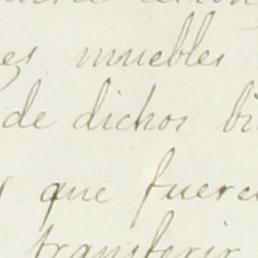 es muebles
de dichos bi
que fuere
transferir